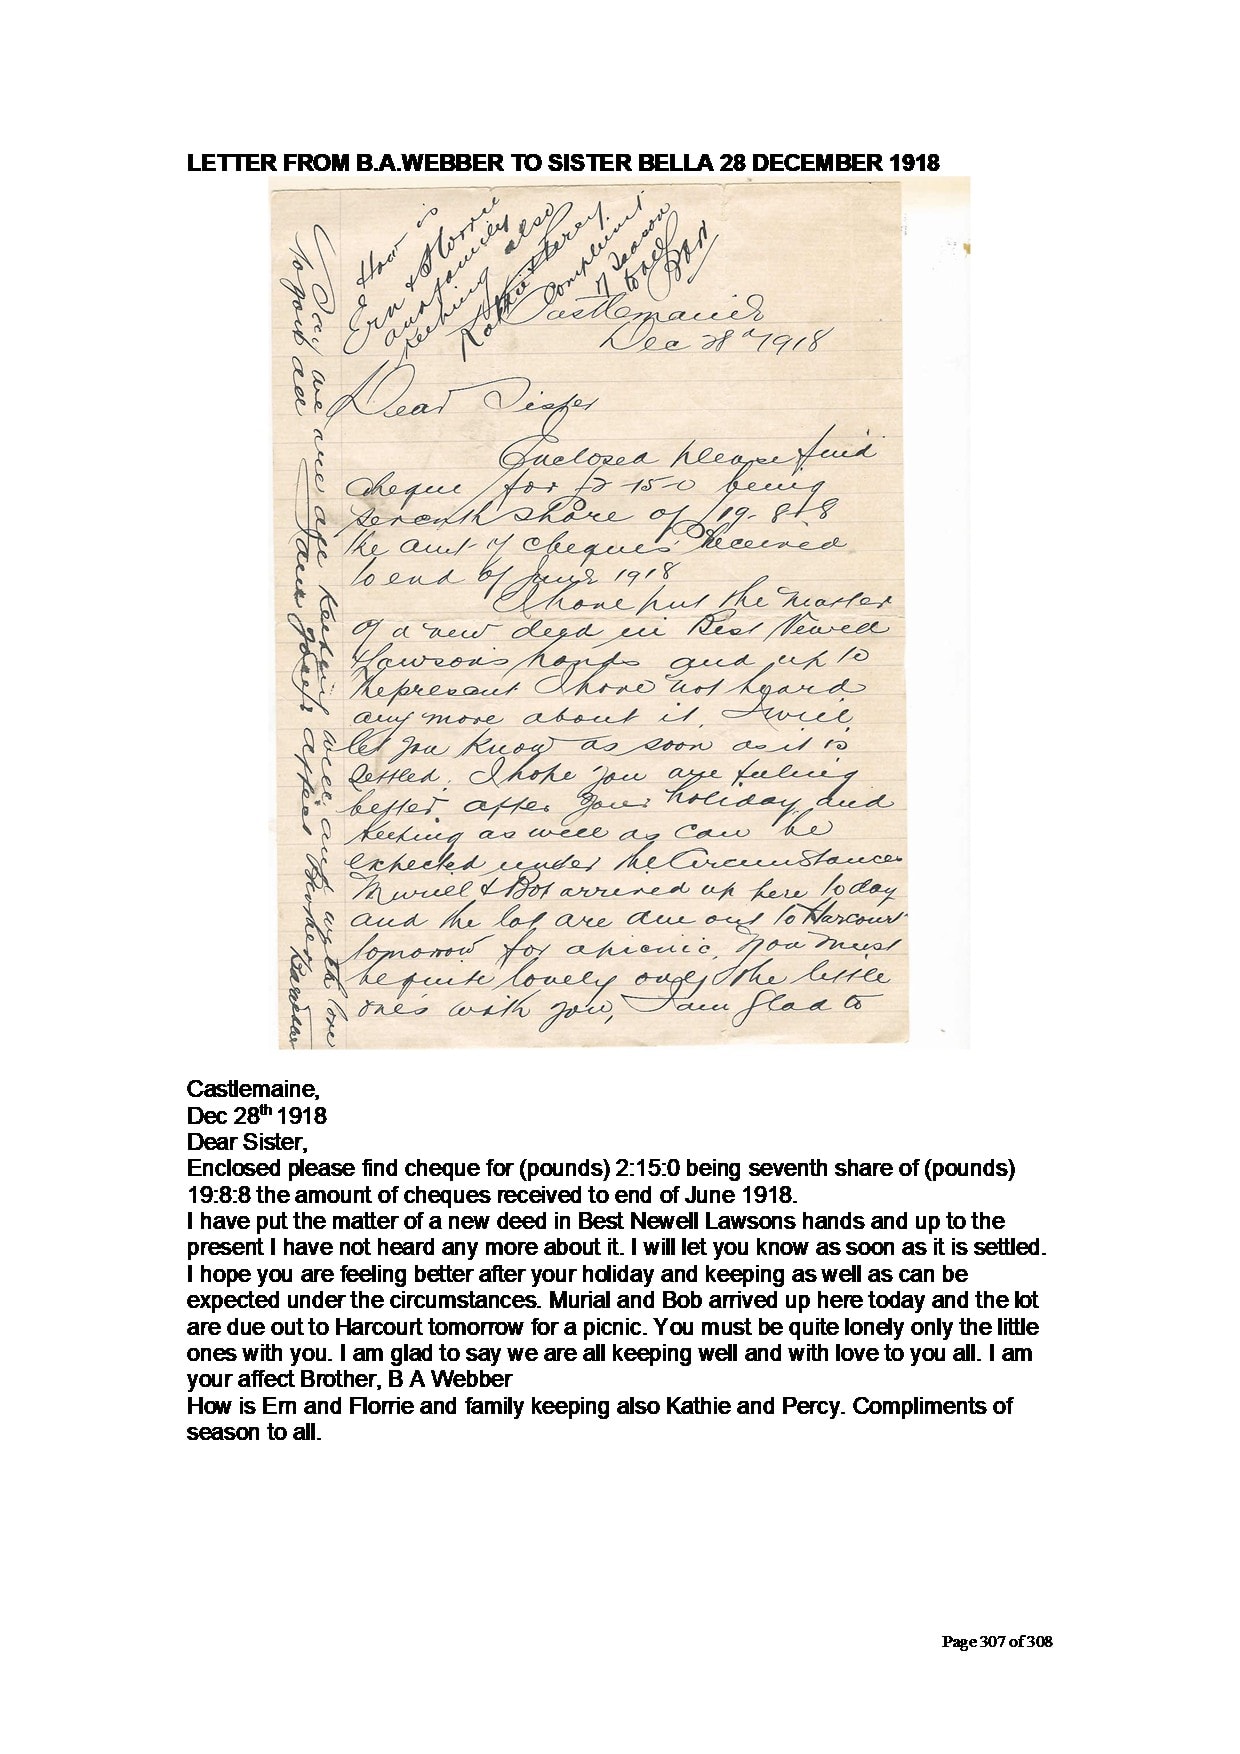 LETTER FROM B.A.WEBBER TO SISTER BELLA 28 DECEMBER 1918
How is
Ern & Florrie
and family
keeping also
Kathie & Percy.
Compliments
of Season
to all
BAW
Castlemaine
Dec 28th 1918
Dear Sister
Enclosed please find
cheque for £2-15-0 being
seventh share of £19-8-8
the amt of cheques received
to end of June 1918
I have put the matter
of a new deed in Best Newell
Lawson's hands and up to
the present I have not heard
any more about it. I will
let you know as soon as it is
settled. I hope you are feeling
better after your holiday and
keeping as well as can be
expected under the Circumstances
Muriel & Bob arrived up here today
and the lot are due out to Harcourt
tomorrow for a picnic. You must
be quite lonely only the little
ones with you, I am glad to
Say we are all keeping well and with love
to you all I am your affect Brother BAWebber
Castlemaine,
Dec 28th 1918
Dear Sister,
Enclosed please find cheque for (pounds) 2:15:0 being seventh share of (pounds)
19:8:8 the amount of cheques received to end of June 1918.
I have put the matter of a new deed in Best Newell Lawsons hands and up to the
present I have not heard any more about it. I will let you know as soon as it is settled.
I hope you are feeling better after your holiday and keeping as well as can be
expected under the circumstances. Murial and Bob arrived up here today and the lot
are due out to Harcourt tomorrow for a picnic. You must be quite lonely only the little
ones with you. I am glad to say we are all keeping well and with love to you all. I am
your affect Brother, B A Webber
How is Ern and Florrie and family keeping also Kathie and Percy. Compliments of
season to all.
Page 307 of 308